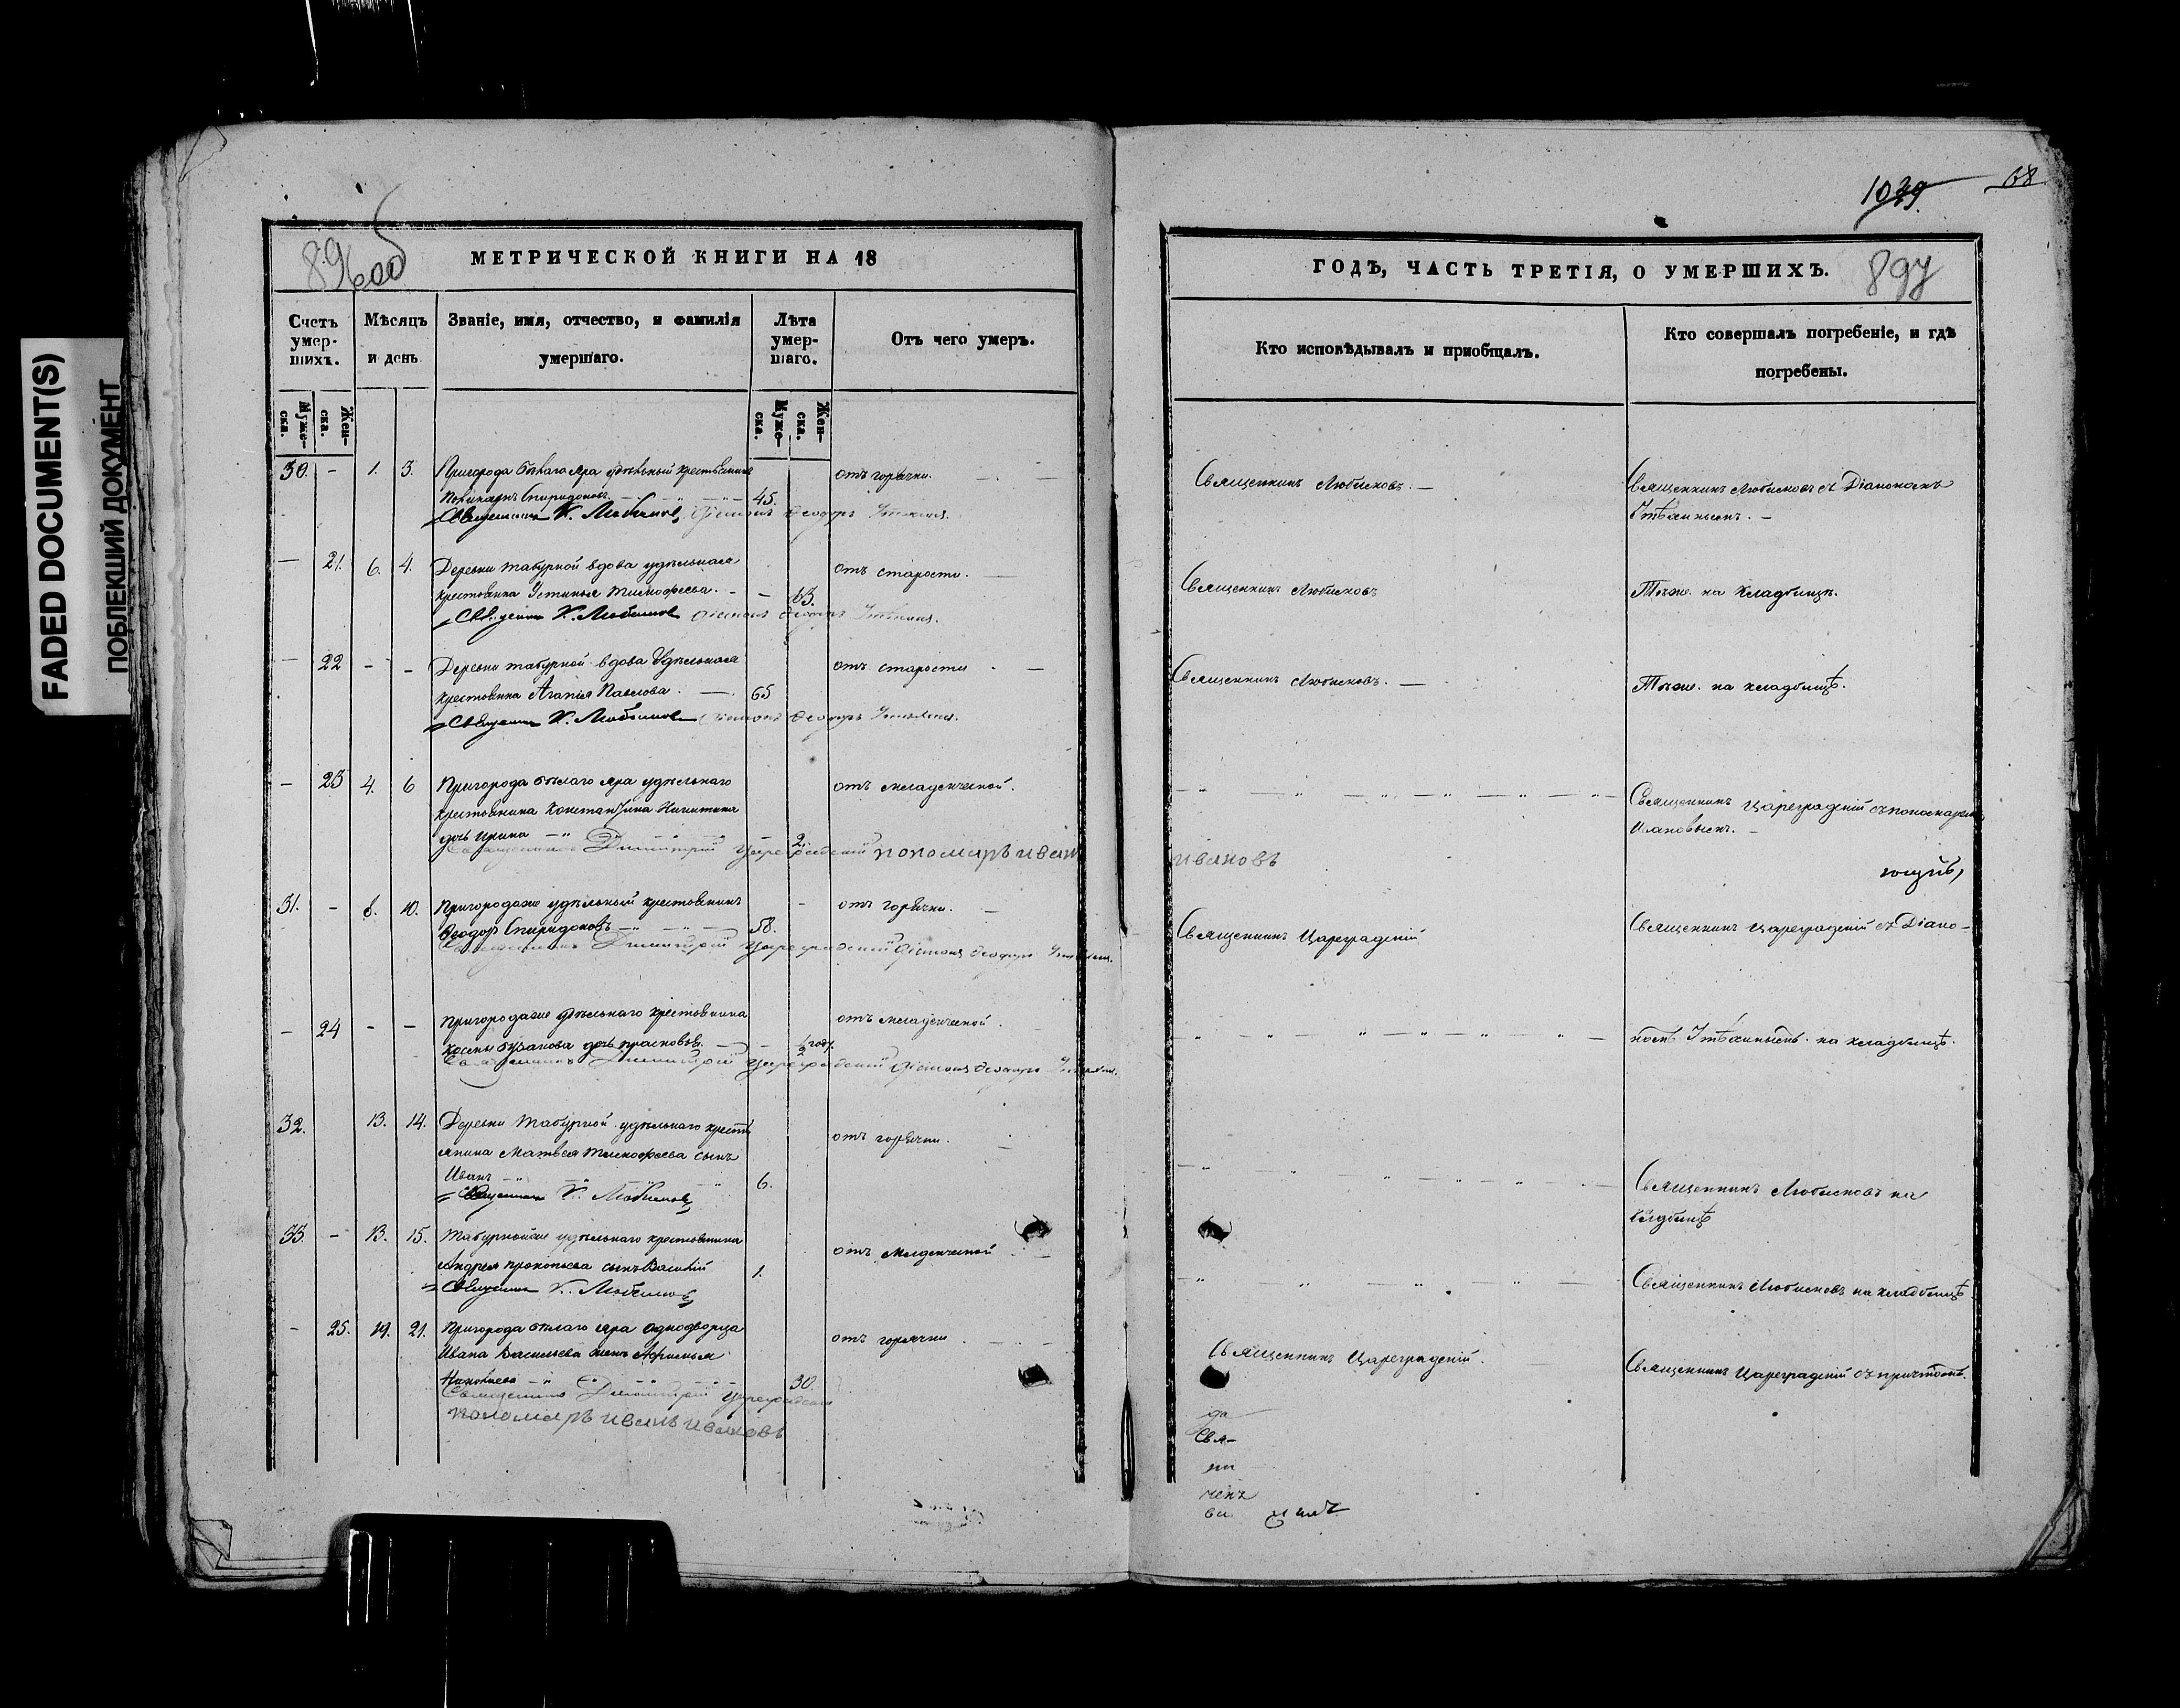 FADED DOCUMENT(S)
ПОБЛЕКШИЙ ДОКУМЕНТ
896об
МЕТРИЧЕСКОЙ КНИГИ НА 18
Счетъ умер-шихъ.
Мѣсяцъ и день
Званіе, имя, отчество, и фамилія умершаго.
Лѣта умер-шаго.
Отъ чего умеръ.
Муже-ска.
Жен-ска.
Муже-ска.
Жен-ска.
30. - 1. 3. Пригорода бѣлаго яра удѣльный крестьянинъ отъ горячки.
Спиридоновъ 45.
Священникъ К. Любимовъ, Діаконъ Ѳеодоръ
— 21. 6. 4. Деревни табурной вдова удѣльная отъ старости.
крестьянка Устинья Тимофеева. 63.
Священникъ К. Любимовъ Діаконъ Ѳеодоръ
— 22 - - Деревни табурной вдова удѣльная отъ старости
крестьянка Агапія Павлова. 65
Священникъ К. Любимовъ Діаконъ Ѳеодоръ
— 23 4. 6 Пригорода бѣлаго яра удѣльнаго отъ младенческой.
крестьянина Константина Никитина
дочь Ирина 2
Священникъ Димитрій Цареградскій пономарь иванъ
31. - 8. 10. Пригородаже удѣльный крестьянинъ отъ горячки.
Ѳеодоръ Спиридоновъ 58.
Священникъ Димитрій Цареградскій Діаконъ Ѳеодоръ
— 24 - - Пригородаже удѣльнаго крестьянина отъ младенческой.
Космы дочь прасковья. ½ году.
Священникъ Димитрій Цареградскій Діаконъ Ѳеодоръ
32. 13. 14. Деревни Табурной удѣльнаго кресть отъ горячки.
янина Матвея Тимофеева сынъ
Иванъ 6.
Священникъ К. Любимовъ
33. - 13. 15. Табурнойже удѣльнаго крестьянина отъ младенческой
Андрея прокопьева сынъ Василій 1.
Священникъ К. Любимовъ
- 25. 19. 21. Пригорода бѣлаго яра однодворца отъ горячки
Ивана Васильева жена Афимья
Николаева 30.
Священникъ Димитрій Цареградскій
пономарь иванъ ивановъ
1039
68
ГОДѢ, ЧАСТЬ ТРЕТІЯ, О УМЕРШИХЪ.
897
Кто исповѣдывалъ и пріобщалъ.
Кто совершалъ погребеніе, и гдѣ погребены.
Священникъ Любимовъ. Священникъ Любимовъ съ Діакономъ
Священникъ Любимовъ Тѣже. на кладбищѣ.
Священникъ Любимовъ. Тѣже. на кладбищѣ.
Священникъ Цареградскій съ пономаремъ
Ивановымъ.
ивановъ
Священникъ Цареградскій Священникъ Цареградскій съ Діако-
номъ на кладбищѣ.
Священникъ Любимовъ на
кладбищѣ
Священникъ Любимовъ на кладбищѣ
Священникъ Цареградскій. Священникъ Цареградскій съ причтомъ.
да
Свя-